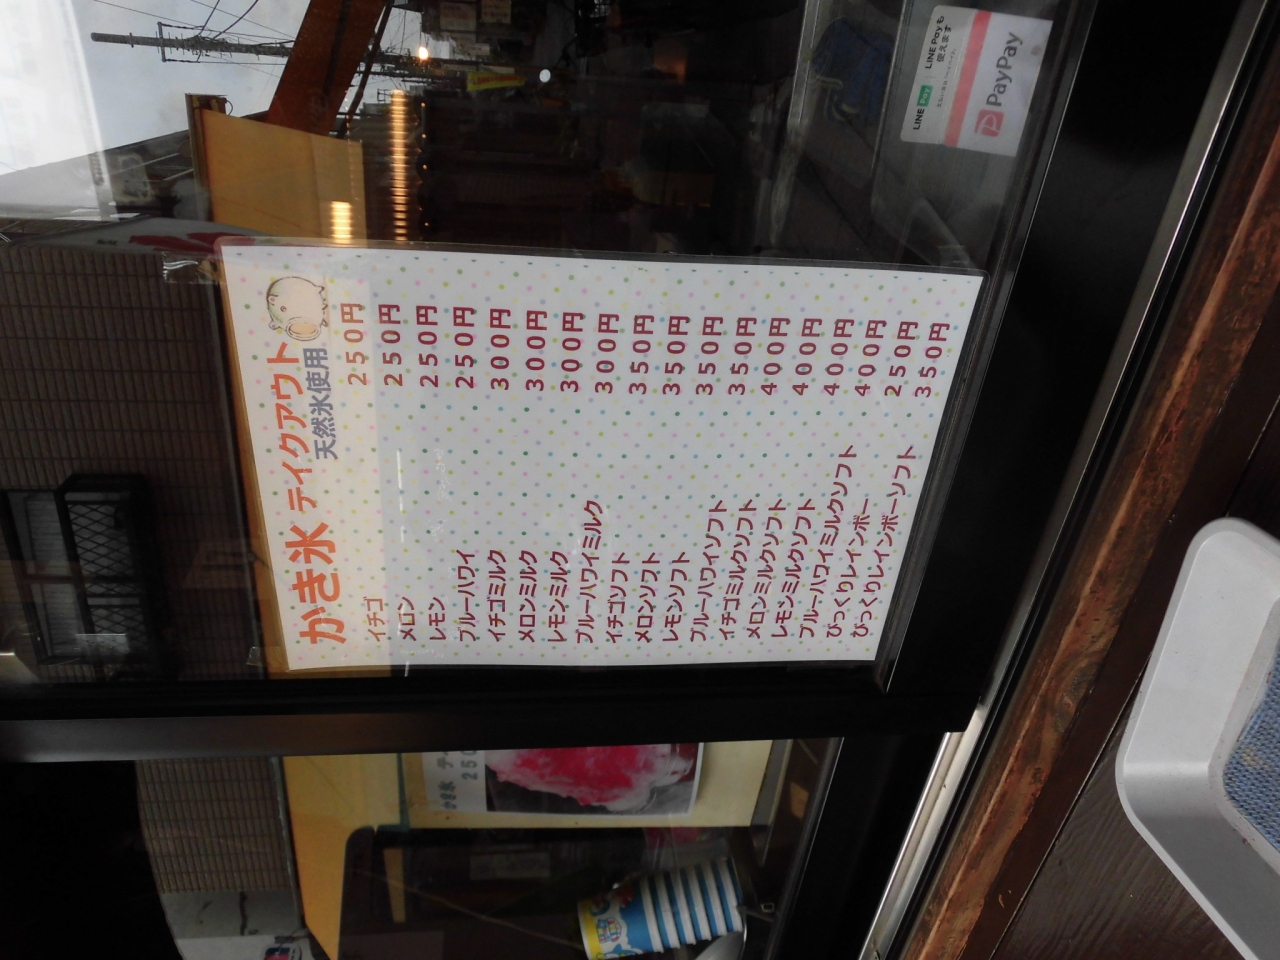 かき氷 テイクアウト
天然氷使用
イチゴ 250円
メロン 250円
レモン 250円
ブルーハワイ 250円
イチゴミルク 300円
メロンミルク 300円
レモンミルク 300円
ブルーハワイミルク 300円
イチゴソフト 350円
メロンソフト 350円
レモンソフト 350円
ブルーハワイソフト 350円
イチゴミルクソフト 400円
メロンミルクソフト 400円
レモンミルクソフト 400円
ブルーハワイミルクソフト 400円
びっくりレインボー 250円
びっくりレインボーソフト 350円
LINE Pay
LINE Payも
使えます
PayPay
かき氷 テ
250